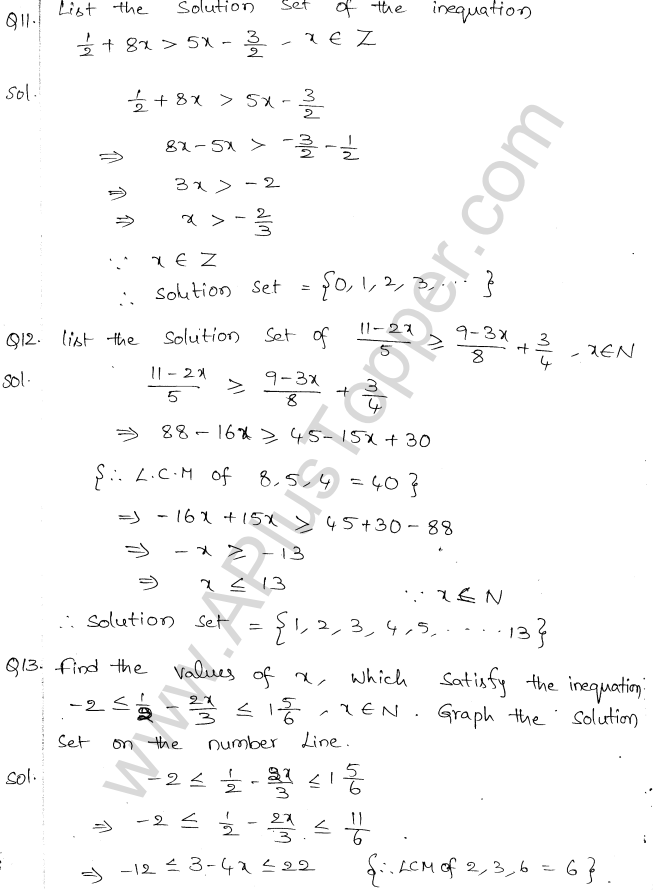 Q11. List the Solution Set of the inequation
1/2 + 8x > 5x - 3/2 , x ∈ Z
Sol. 1/2 + 8x > 5x - 3/2
⇒ 8x - 5x > -3/2 - 1/2
⇒ 3x > -2
⇒ x > -2/3
∵ x ∈ Z
∴ Solution Set = {0, 1, 2, 3, ... }
Q12. list the Solution Set of (11-2x)/5 ≥ (9-3x)/8 + 3/4 , x∈N
Sol. (11-2x)/5 ≥ (9-3x)/8 + 3/4
⇒ 88 - 16x ≥ 45 - 15x + 30
{∴ L.C.M of 8, 5, 4 = 40}
⇒ -16x + 15x ≥ 45+30-88
⇒ -x ≥ -13
⇒ x ≤ 13 ∵ x ∈ N
∴ Solution Set = {1, 2, 3, 4, 5, ..... 13}
Q13. Find the values of x, which satisfy the inequation
-2 ≤ 1/2 - 2x/3 ≤ 1 5/6 , x ∈ N. Graph the solution
Set on the number Line.
Sol. -2 ≤ 1/2 - 2x/3 ≤ 1 5/6
⇒ -2 ≤ 1/2 - 2x/3 ≤ 11/6
⇒ -12 ≤ 3-4x ≤ 22 {∴ LCM of 2, 3, 6 = 6}
www.APlusTopper.com